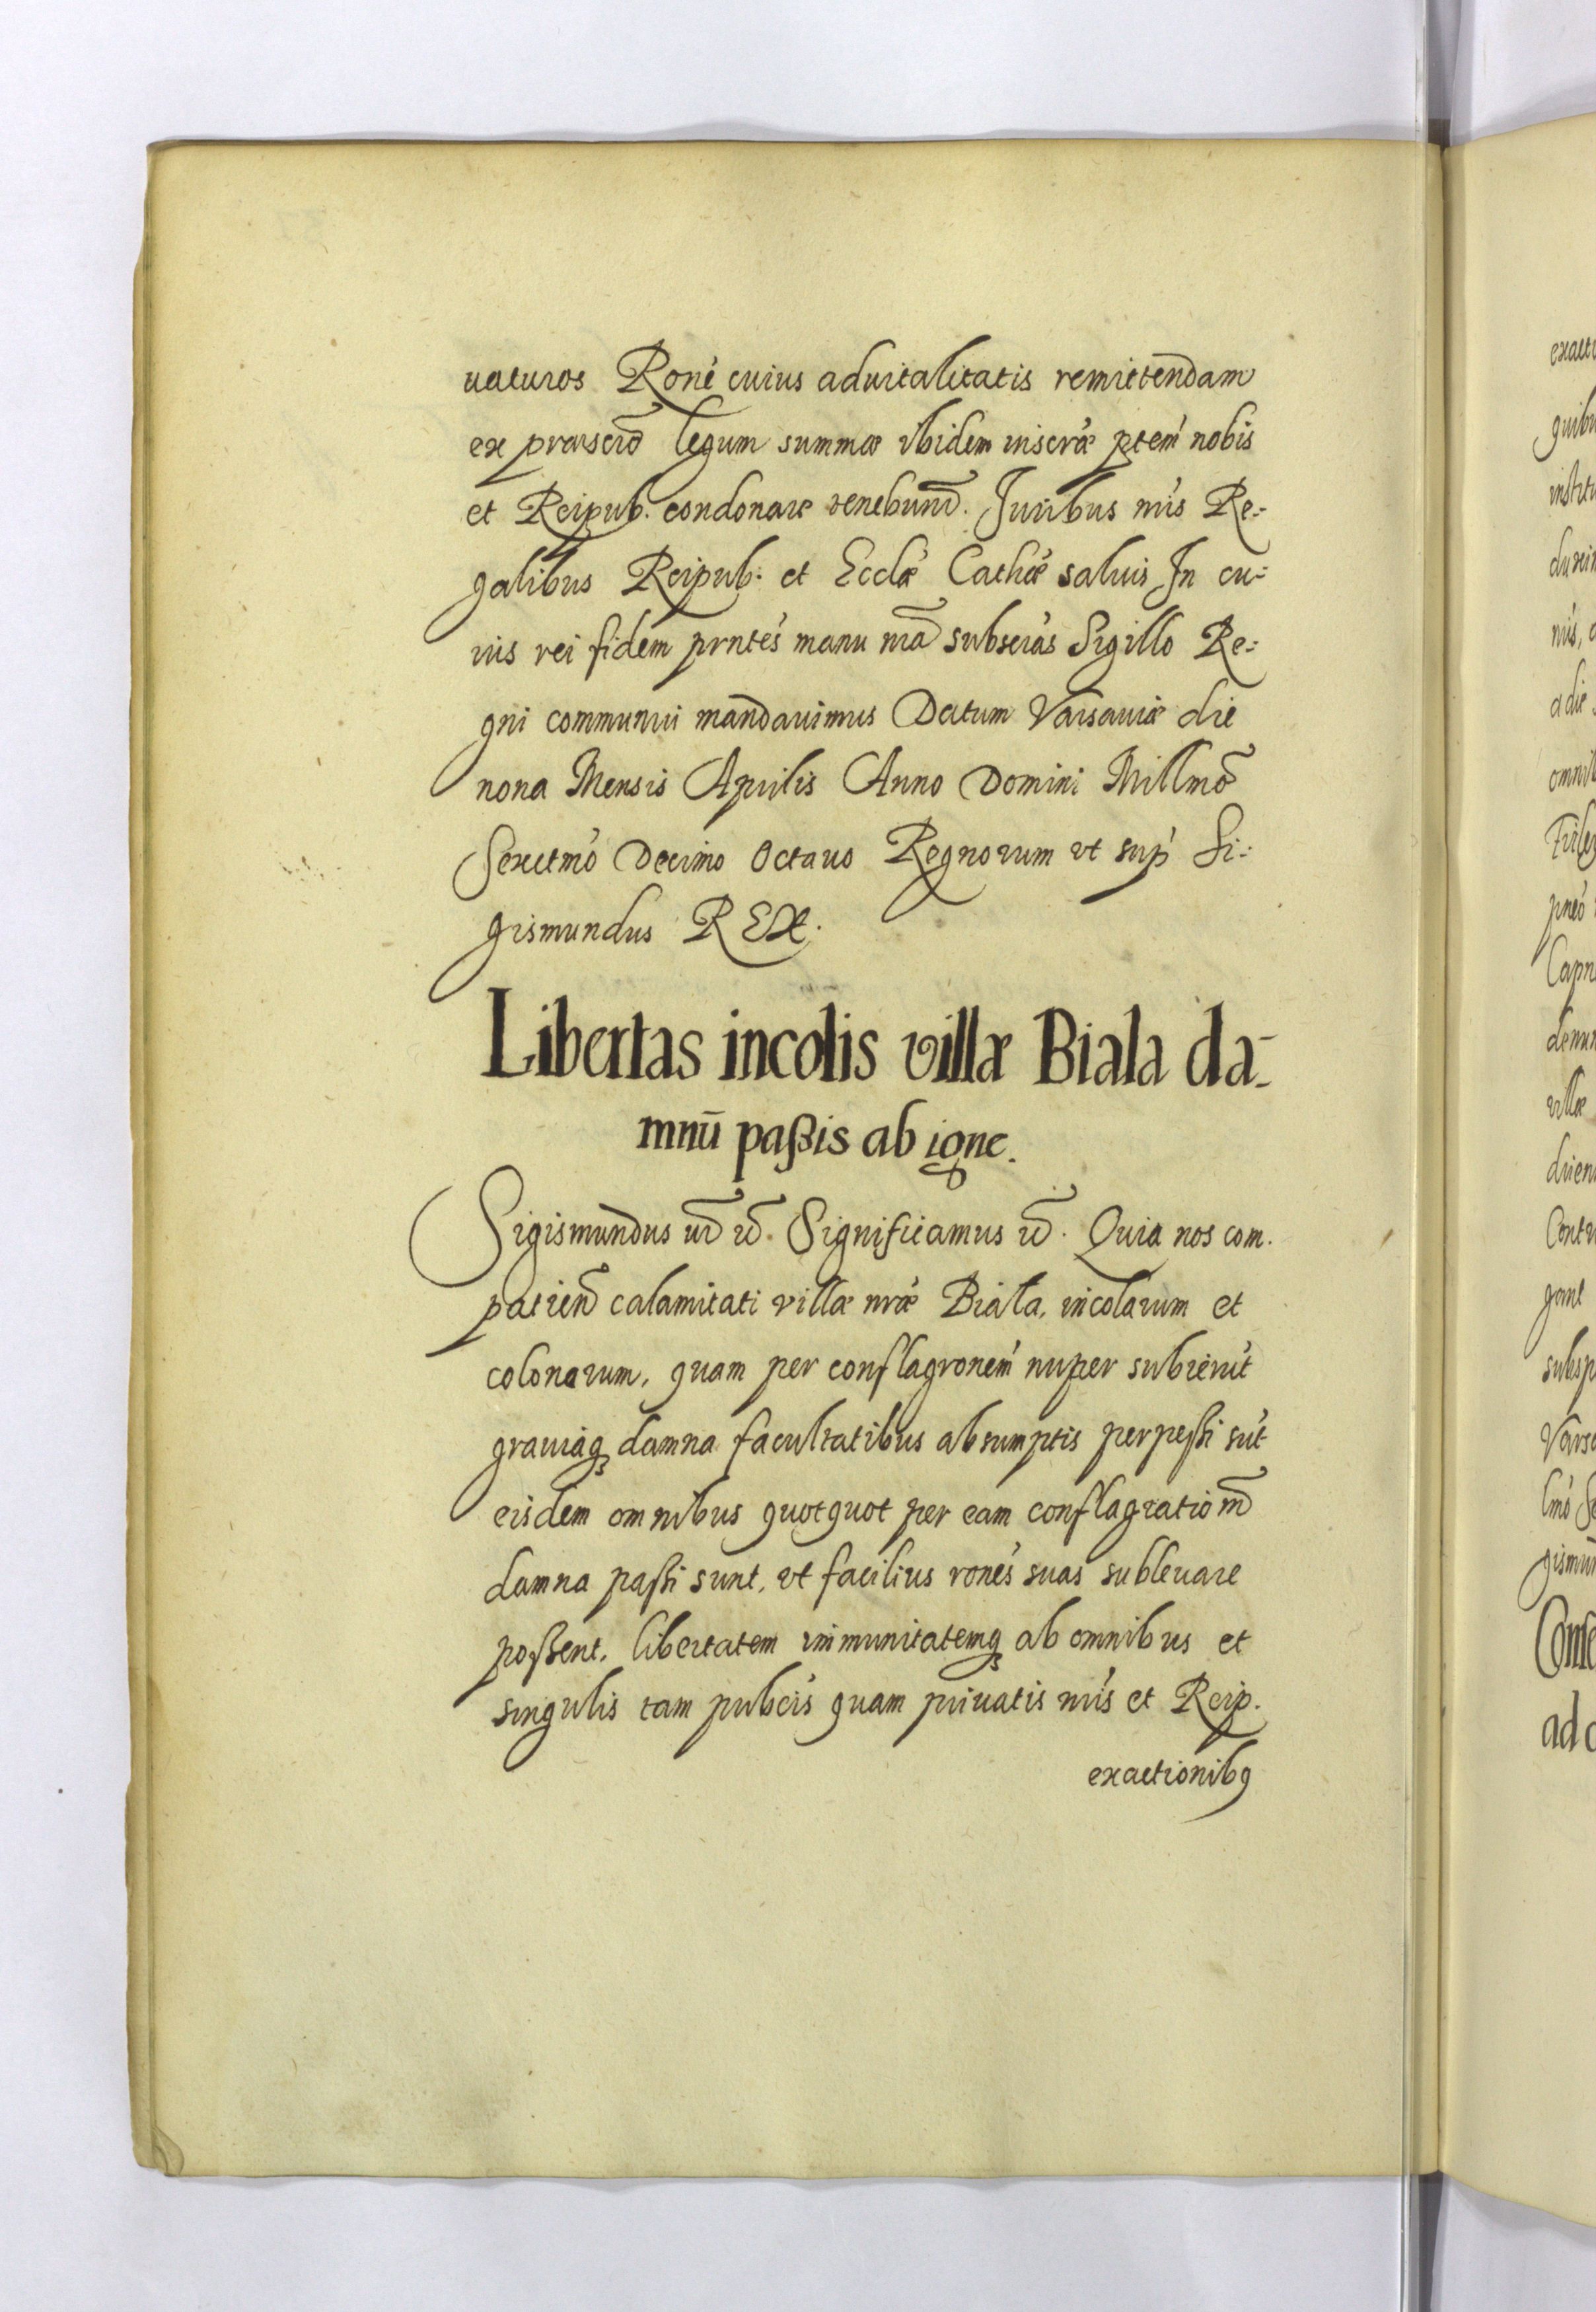 uaturos Roné cuius aduitalitatis remittendam
ex praescrō legum summae ibidem inscrae ptem nobis
et Reipub. condonare tenebunt. Juribus nris Re-
galibus Reipub. et Ecclae Cathae saluis In cu-
ius rei fidem prntes manu nra subscras Sigillo Re-
gni communiri mandauimus Datum Varsauiae die
nona Mensis Aprilis Anno Domini Millmo
Sexctmo Decimo Octauo Regnorum vt sup Si-
gismundus REX.
Libertas incolis villae Biala da-
mnū paßis ab igne.
Sigismundus Significamus Quia nos com.
patien calamitati villae nrae Biała, incolarum et
colonarum, quam per conflagronem nuper subierūt
grauiaq damna facultatibus absumptis perpeßi sūt
eisdem omnibus quotquot per eam conflagrationē
damna paßi sunt, vt facilius rones suas subleuare
poßent, libertatem immunitatemq ab omnibus et
singulis tam pubcis quam priuatis nris et Reip.
exactionibq
exacti
quibu
institu
a die
omnib
villae
Contr
gant
Varsa
gismun
Conse
ad c